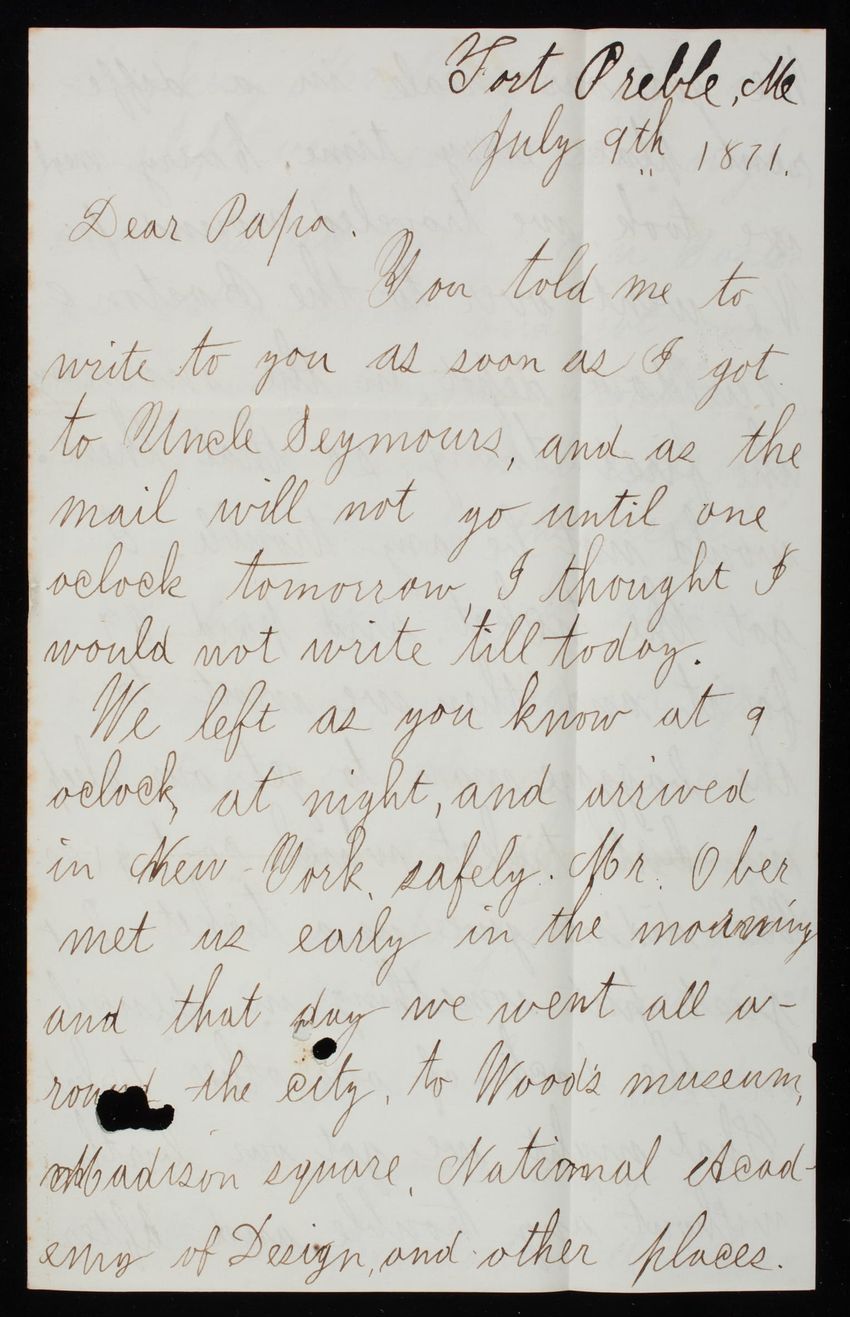 Fort Preble, Me
July 9th 1871.
Dear Papa.
You told me to
write to you as soon as I got
to Uncle Seymours, and as the
mail will not go until one
oclock tomorrow, I thought I
would not write 'till today.
We left as you know at 9
oclock, at night, and arrived
in New-York, safely. Mr. Ober
met us early in the morning
and that day we went all a-
round the city, to Wood's museum,
Madison square, National Acad-
emy of Design, and other places.